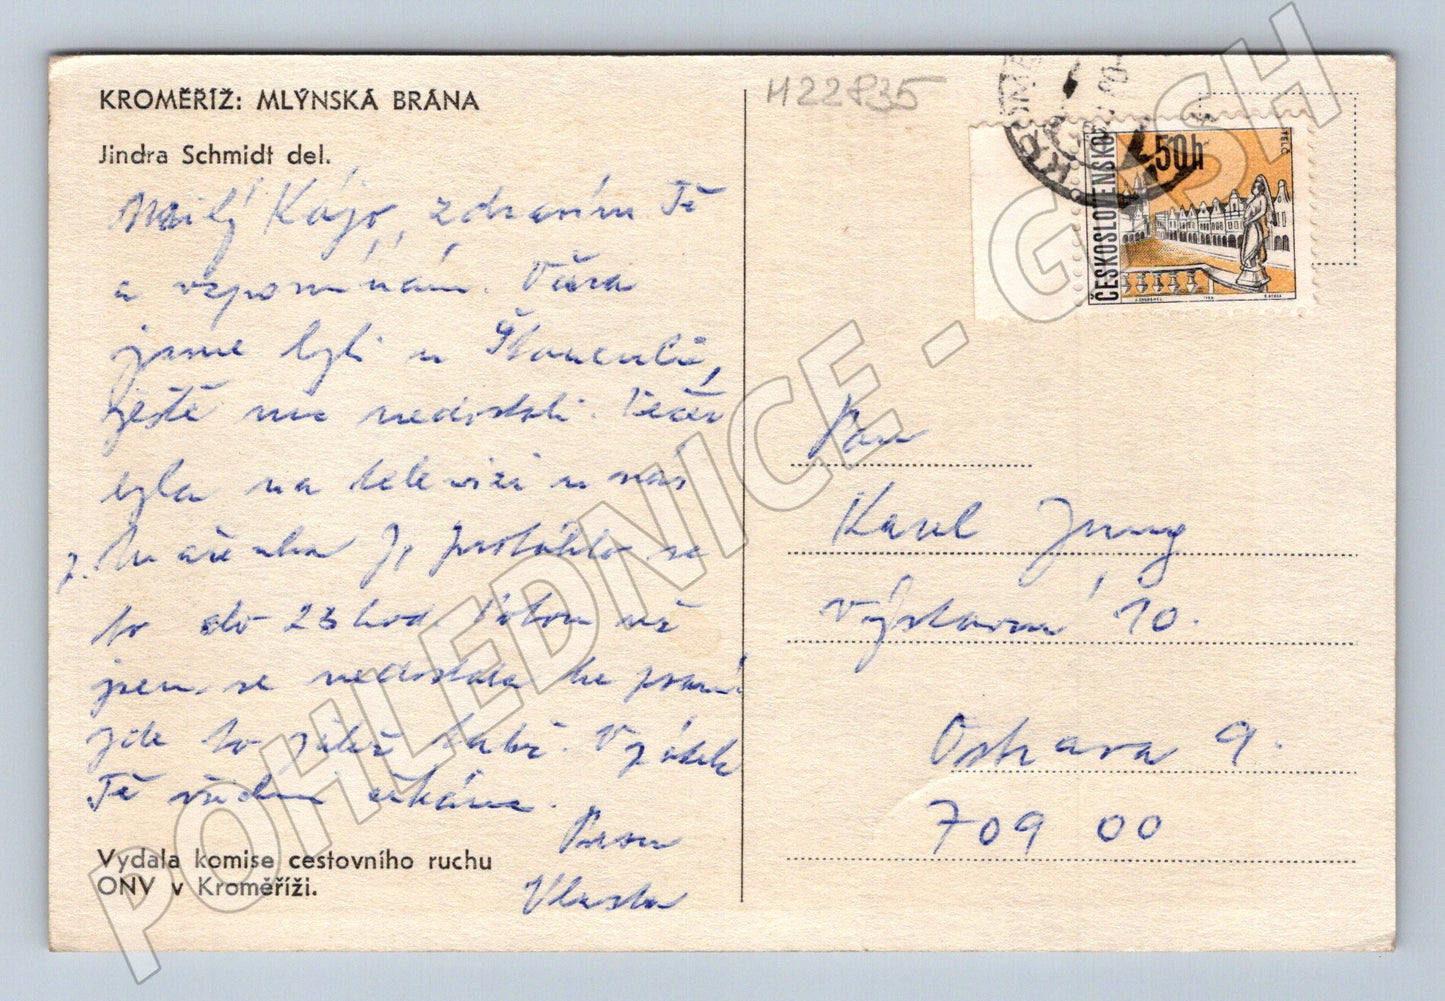 KROMĚŘÍŽ: MLÝNSKÁ BRÁNA
Jindra Schmidt del.
H22835
Milý Kájo, zdravím Tě
a vzpomínám. Včera
jsme byli u
ještě nic nedostali. Večer
byla na televizi u nás
Mařenka J, protáhlo se
to do 23 hod
jsem se nedostala ke psaní
jde to
Tě všichni
Vlasta
Vydala komise cestovního ruchu
ONV v Kroměříži.
ČESKOSLOVENSKO
50h
TELČ
Pan
Karel Jung
Výstavní 10.
Ostrava 9.
709 00
POHLEDNICE - GASH